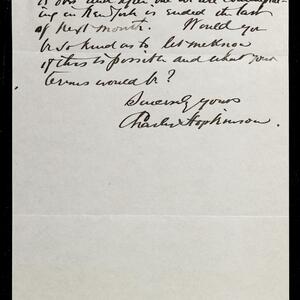 is over and after one we are contemplat-
ing in New York is ended the last
of next month. Would you
be so kind as to let me know
if this is possible and what your
terms would be?
Sincerely yours
Charles Hopkinson.